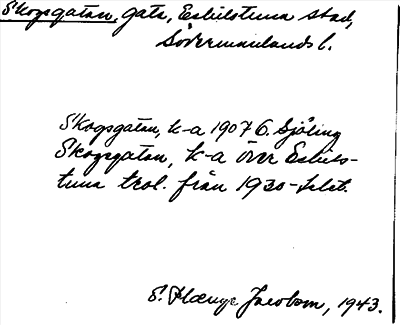 Skogsgatan, gata, Eskilstuna stad,
Södermanlands l.
Skogsgatan, k-a 1907 G. Sjöling
Skogsgatan, k-a över Eskils-
tuna trol. från 1930-talet.
S. Hænge Jacobson, 1943.